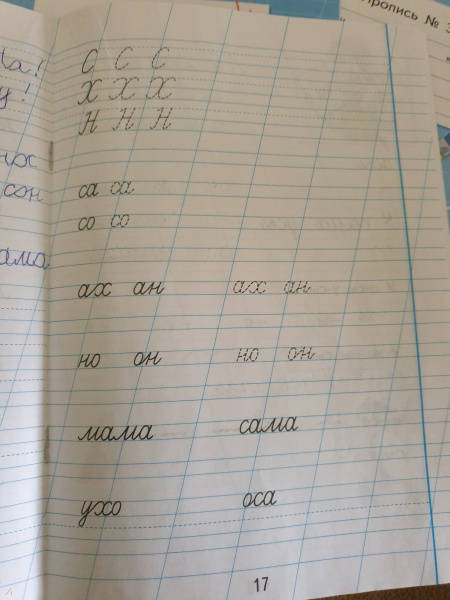 Пропись № 3
С С С
Х Х Х
Н Н Н
са са
со со
ах ан ах ан
но он но он
мама сама
ухо оса
сон
ама
17